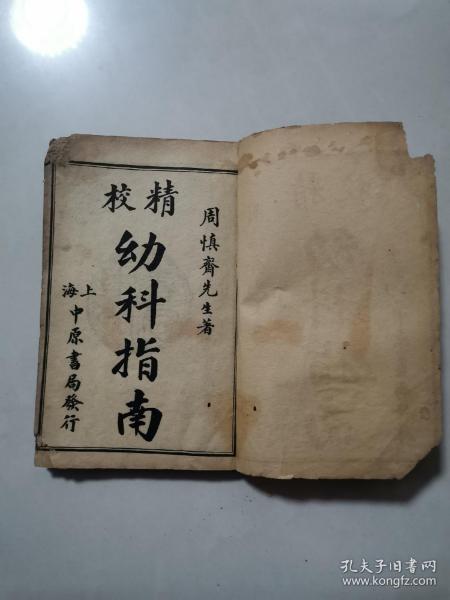 周慎齋先生著
精校
幼科指南
上海
中原書局發行
孔夫子旧书网
www.kongfz.com